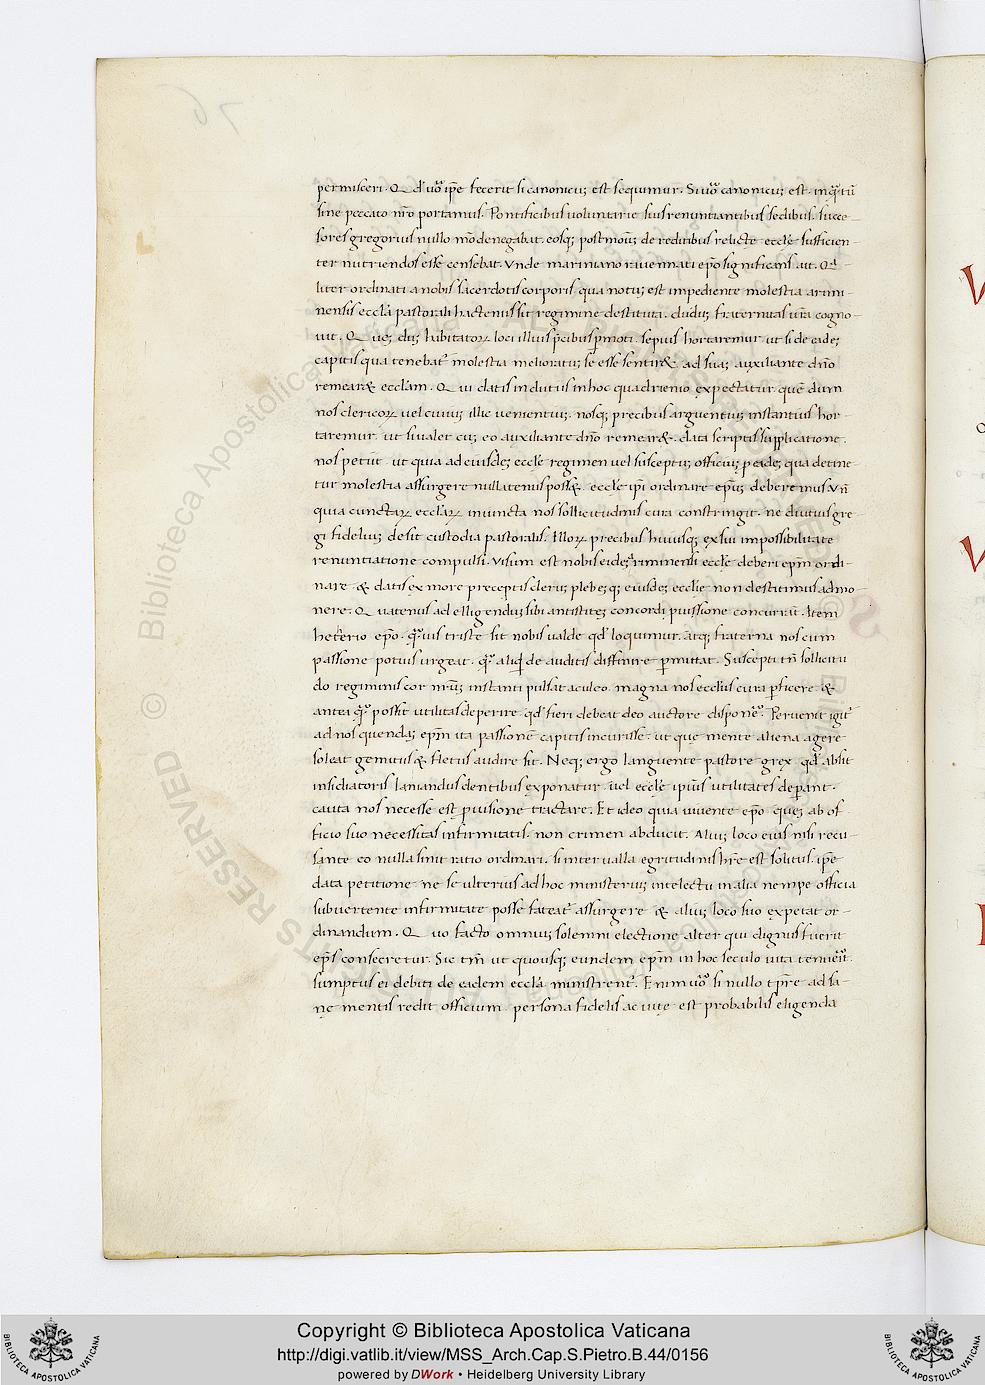 permisceri. Qd' uo ipe fecerit si canonicu est sequimur. Si uo canonicu est. inqtu
sine peccato nro portamus. Pontificibus uoluntarie suis renuntiantibus sedibus. succe-
sores gregorius nullo mo denegabat. eosq; postmodu de reditibus relicte eccle sufficien-
ter nutriendos esse censebat. Vnde mariniano rauennati epo significans ait. Qa-
liter ordinati a nobis sacerdotis corporis qua notu est impediente molestia arimi-
nensis eccla pastorali hactenus sit regimine destituta. dudu fraternitas ura cogno-
uit. Que du habitatorum loci illius pcibus pmoti sepius hortaremur ut si de eade
capitis qua tenebat molestia melioratu se esse sentiret. ad sua auxiliante dno
remearet eccliam. Qui datis indutiis in hoc quadriennio expectatur. que dum
nos clericorum uel ciuiu illic uenientiu. nosq; precibus arguentiu instantius hor-
taremur. ut si ualet cu eo auxiliante dno remearet. data scriptis supplicatione.
nos petiit. ut quia ad eiusde eccle regimen uel susceptu officiu p eade qua detine-
tur molestia assurgere nullatenus posset. eccle ipi ordinare epm deberemus. Vn
quia cunctarum ecclarum iniuncta nos sollicitudinis cura constringit. ne diutius gre-
gi fideliu desit custodia pastoralis. Illorum precibus huiusq; ex sui impossibilitate
renuntiatione compulsi. uisum est nobis eide ariminensi eccle deberi epm ordi-
nare & datis ex more preceptis cleru plebeq; eiusde ecclie non destitimus admo-
nere. Quatenus ad elligendu sibi antistite concordi puisione concurrat. Item
hetherio epo. quis triste sit nobis ualde qd loquimur. atq; fraterna nos cum
passione potius urgeat. qa aliqd de auditis diffinire pmittat. Suscepti tn sollicitu
do regiminis cor nrm instanti pulsat aculeo. magna nos ecclesiis cura pspicere &
antea qa possit utilitas deperire. qd fieri debeat deo auctore disponere. Peruenit igit
ad nos quenda epm ita passione capitis incurisse. ut que mente aliena agere
soleat gemitus & fletus audire sit. Neq; ergo languente pastore grex. qd absit
insidiatoris laniandus dentibus exponatur. uel eccle ipius utilitates depeant.
cauta nos necesse est puisione tractare. Et ideo quia uiuente epo. que ab of-
ficio suo necessitas infirmitatis. non crimen abducit. Aliu loco eius nisi recu-
sante eo nulla sinit ratio ordinari. si interualla egritudinis hre est solitus. ipe
data petitione ne se ulterius ad hoc ministeriu intelectu in alia nempe officia
subuertente infirmitate posse fateat assurgere & aliu loco suo expetat or-
dinandum. Quo facto omniu solemni electione alter qui dignus fuerit
eps consecretur. Sic tm ut quousq; eundem epm in hoc seculo uita tenuerit.
sumptus ei debiti de eadem eccla ministrent. Enim uo si nullo tpre ad sa-
ne mentis redit officium. persona fidelis ac uite est probabilis eligenda
Copyright © Biblioteca Apostolica Vaticana
http://digi.vatlib.it/view/MSS_Arch.Cap.S.Pietro.B.44/0156
powered by DWork • Heidelberg University Library